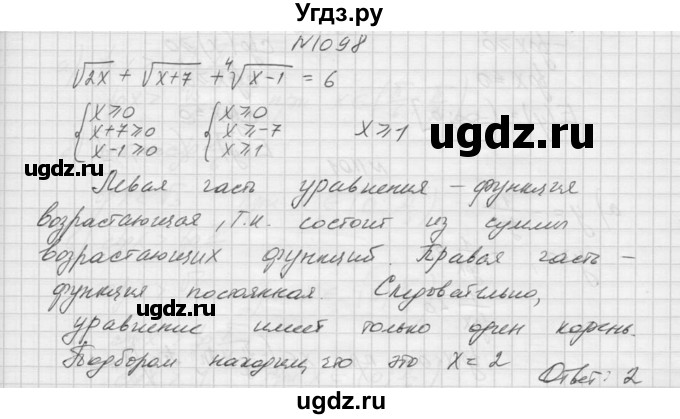 Угдз.ру
N1098
√2x + √x+7 + ⁴√x-1 = 6
{ x ⩾ 0 { x ⩾ 0
x+7 ⩾ 0 x ⩾ -7 x ⩾ 1
x-1 ⩾ 0 x ⩾ 1
ugdz.ru
ugdz.ru
Левая часть уравнения – функция
возрастающая, т.к. состоит из суммы
возрастающих функций. Правая часть –
функция постоянная. Следовательно,
уравнение имеет только один корень.
Подбором находим, что это x = 2
Ответ: 2
ugdz.ru
ugdz.ru
ugdz.ru